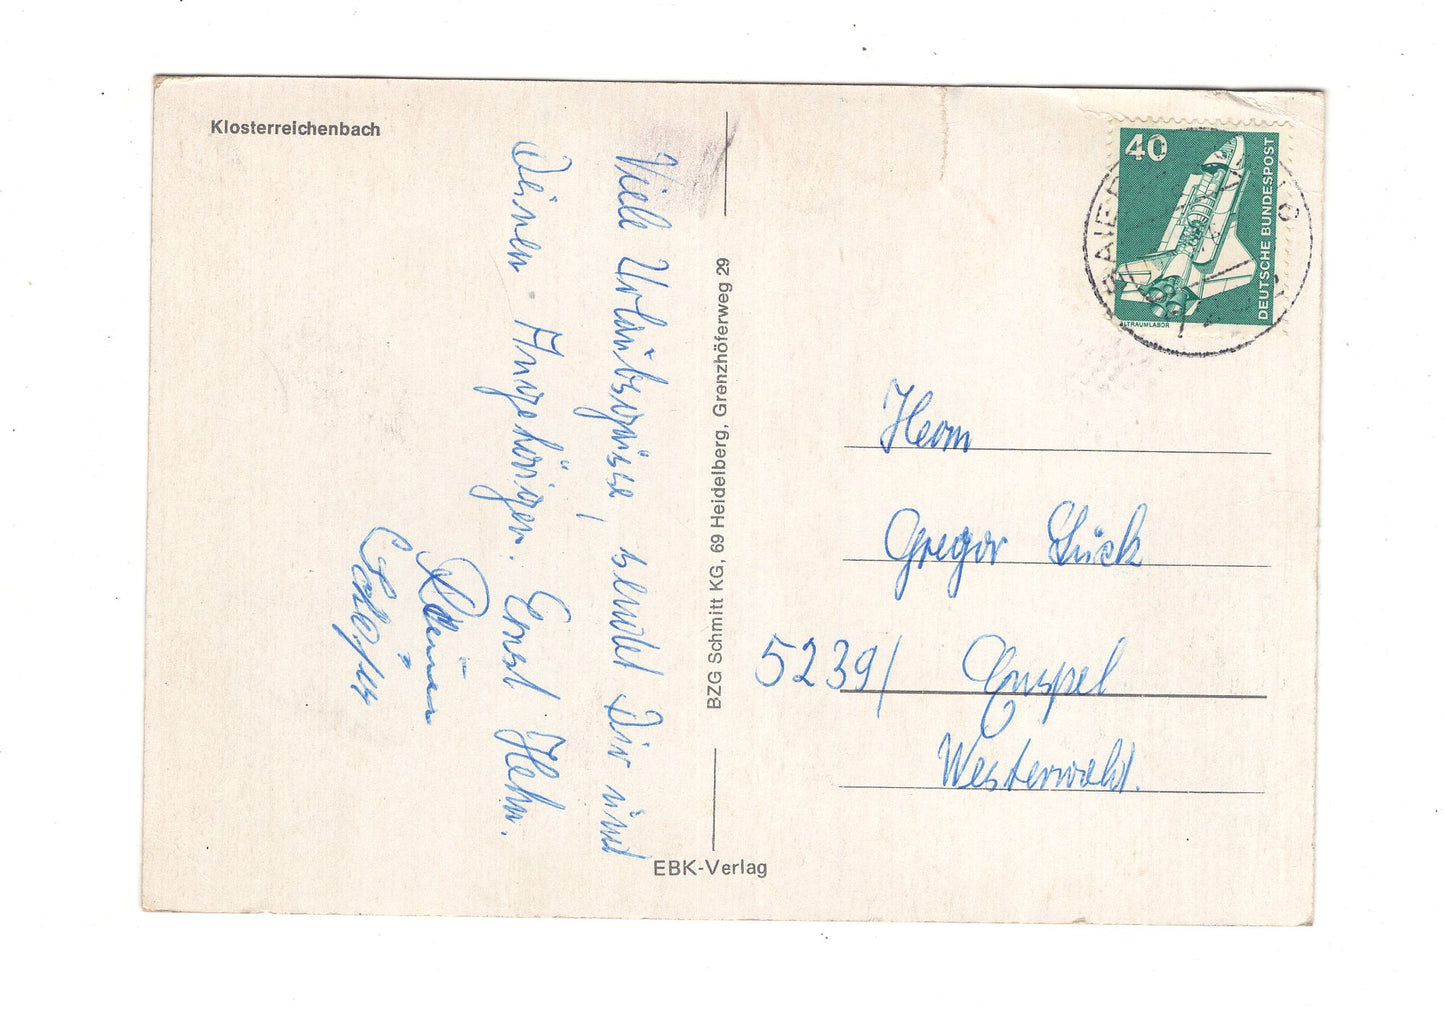 Klosterreichenbach
Viele Urlaubsgrüsse, sendet Dir und
Deinen Angehörigen. Ernst Hehn.
BZG Schmitt KG, 69 Heidelberg, Grenzhöferweg 29
EBK-Verlag
40
DEUTSCHE BUNDESPOST
ALTRAUMLABOR
Herrn
Gregor Lück
5239/ Enspel
Westerwald.